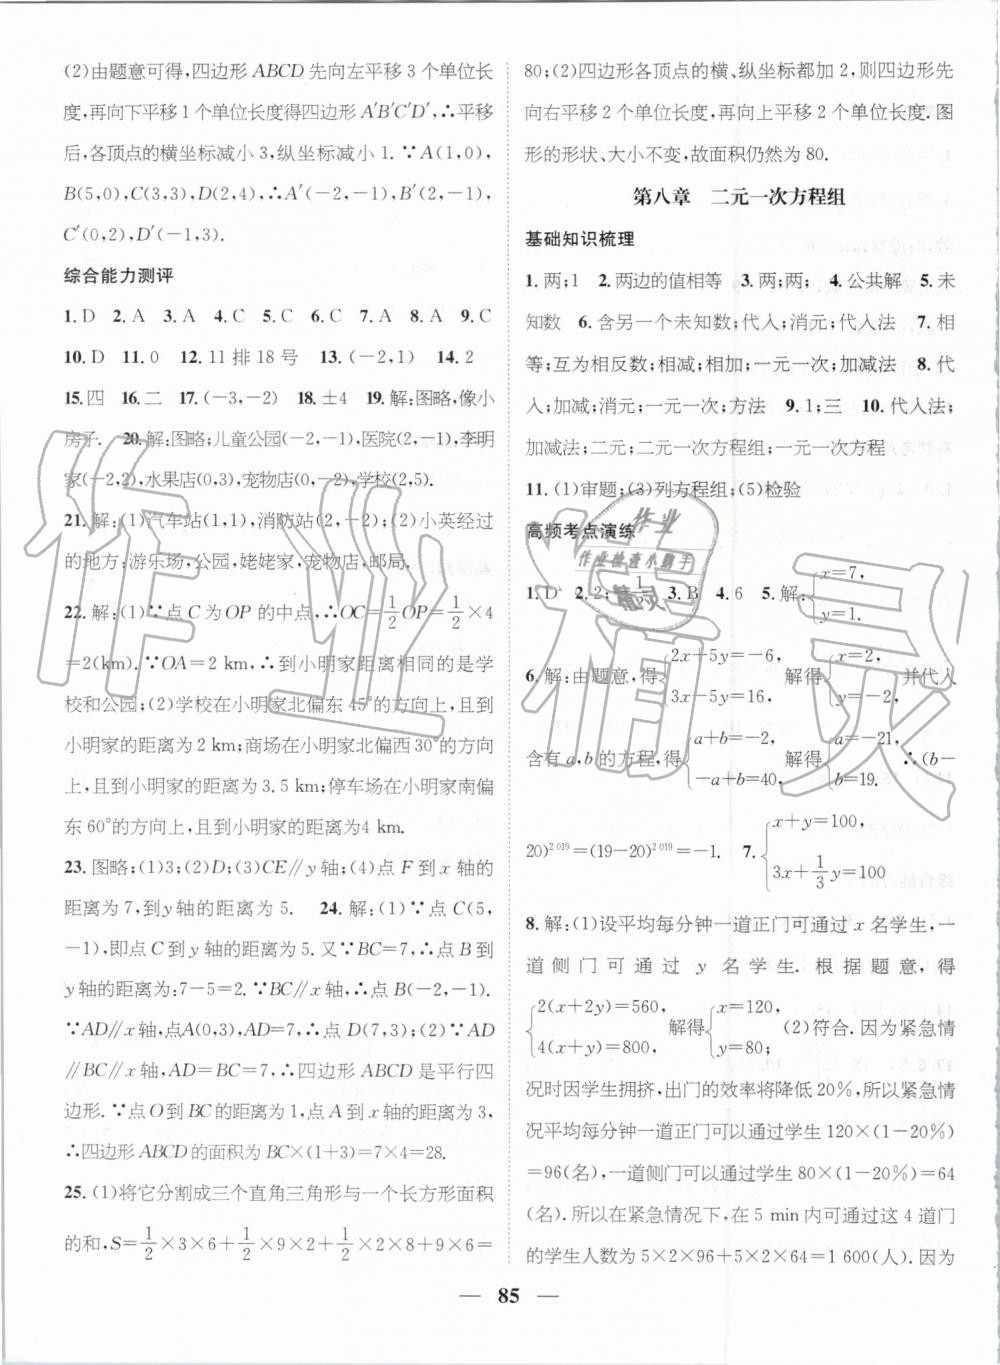 (2)由题意可得,四边形 ABCD 先向左平移 3 个单位长
度,再向下平移 1 个单位长度得四边形 A′B′C′D′,∴平移
后,各顶点的横坐标减小 3,纵坐标减小 1. ∵A(1,0),
B(5,0),C(3,3),D(2,4),∴A′(-2,-1),B′(2,-1),
C′(0,2),D′(-1,3).
综合能力测评
1. D 2. A 3. A 4. C 5. C 6. C 7. A 8. A 9. C
10. D 11. 0 12. 11 排 18 号 13. (-2,1) 14. 2
15. 四 16. 二 17. (-3,-2) 18. ±4 19. 解:图略,像小
房子. 20. 解:图略;儿童公园(-2,-1),医院(2,-1),李明
家(-2,2),水果店(0,3),宠物店(0,-2),学校(2,5).
21. 解:(1)汽车站(1,1),消防站(2,-2);(2)小英经过
的地方:游乐场,公园,姥姥家,宠物店,邮局.
22. 解:(1)∵点 C 为 OP 的中点,∴OC=1/2OP=1/2×4
=2(km). ∵OA=2 km,∴到小明家距离相同的是学
校和公园;(2)学校在小明家北偏东 45°的方向上,且到
小明家的距离为 2 km;商场在小明家北偏西 30°的方向
上,且到小明家的距离为 3.5 km;停车场在小明家南偏
东 60°的方向上,且到小明家的距离为4 km.
23. 图略;(1)3;(2)D;(3)CE∥y 轴;(4)点 F 到 x 轴的
距离为 7,到y轴的距离为 5. 24. 解:(1)∵点 C(5,
-1),即点 C 到 y 轴的距离为 5. 又∵BC=7,∴点 B 到
y轴的距离为:7-5=2. ∵BC∥x 轴,∴点 B(-2,-1).
∵AD∥x 轴,点A(0,3),AD=7,∴点 D(7,3);(2)∵AD
∥BC∥x 轴,AD=BC=7,∴四边形 ABCD 是平行四
边形. ∵点 O 到 BC 的距离为 1,点 A 到 x 轴的距离为 3,
∴四边形 ABCD 的面积=BC×(1+3)=7×4=28.
25. (1)将它分割成三个直角三角形与一个长方形面积
的和,S=1/2×3×6+1/2×9×2+1/2×2×8+9×6=
80;(2)四边形各顶点的横、纵坐标都加 2,则四边形先
向右平移 2 个单位长度,再向上平移 2 个单位长度. 图
形的形状、大小不变,故面积仍然为 80.
第八章 二元一次方程组
基础知识梳理
1. 两;1 2. 两边的值相等 3. 两;两; 4. 公共解 5. 未
知数 6. 含另一个未知数;代入;消元;代入法 7. 相
等;互为相反数;相减;相加;一元一次;加减法 8. 代
入;加减;消元;一元一次;方法 9. 1;三 10. 代入法;
加减法;二元;二元一次方程组;一元一次方程
11. (1)审题;(3)列方程组;(5)检验
高频考点演练
1. D 2. 2;-1/2 3. B 4. 6 5. 解:{x=7, y=1.
6. 解:由题意,得{2x+5y=-6, 3x-5y=16, 解得{x=2, y=-2, 并代入
含有 a,b 的方程,得{a+b=-2, -a+b=40, 解得{a=-21, b=19. ∴(b-
20)²⁰¹⁹=(19-20)²⁰¹⁹=-1. 7. {x+y=100, 3x+1/3y=100
8. 解:(1)设平均每分钟一道正门可通过 x 名学生,一
道侧门可通过 y 名学生. 根据题意,得
{2(x+2y)=560, 4(x+y)=800, 解得{x=120, y=80; (2)符合. 因为紧急情
况时因学生拥挤,出门的效率将降低 20%,所以紧急情
况平均每分钟一道正门可以通过学生 120×(1-20%)
=96(名),一道侧门可以通过学生 80×(1-20%)=64
(名). 所以在紧急情况下,在 5 min 内可通过这 4 道门
的学生人数为 5×2×96+5×2×64=1 600(人). 因为
— 85 —
作业精灵
作业
作业检查小助手
精灵